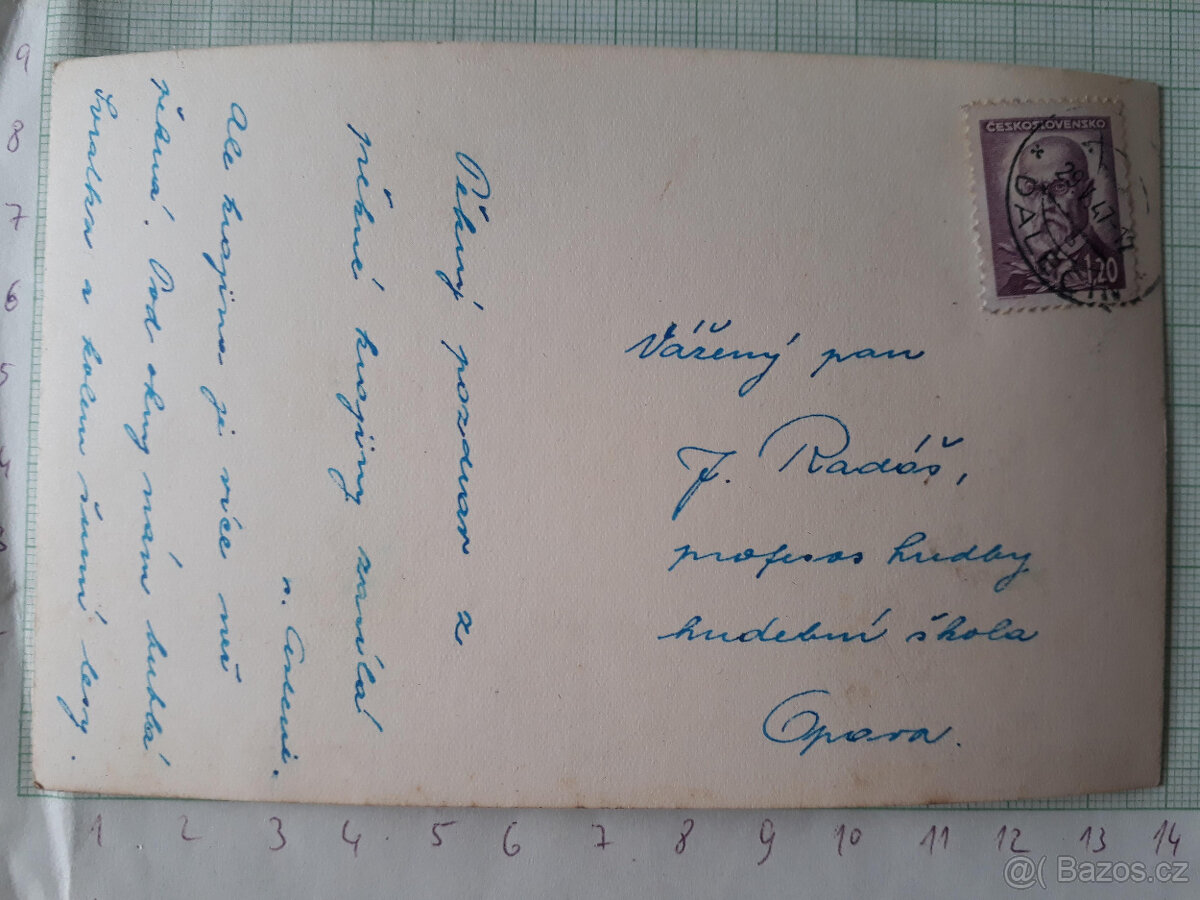 Pěkný pozdrav z
pěkné krajiny zasílá
Ale krajina je více než
pěkná. Pod okny nám bublá
Svratka a kolem šumí lesy.
ČESKOSLOVENSKO
1.20
DALEČÍN
Vážený pan
J. Radáš,
profesor hudby
hudební škola
Opava.
9
8
7
6
5
1 2 3 4 5 6 7 8 9 10 11 12 13 14
@( Bazos.cz